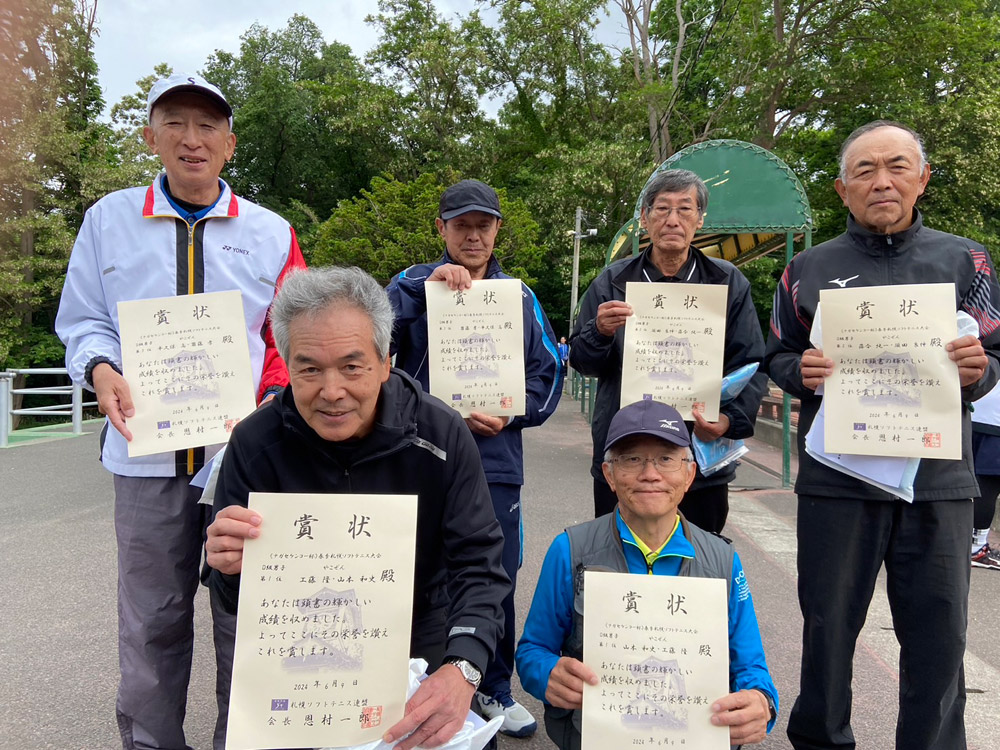 S
YONEX
賞 状
殿
あなたは頭書の輝かしい
成績を収めました。
よってここにその栄誉を讃え
これを賞します。
札幌ソフトテニス連盟
会長 恩村 一郎
賞 状
殿
あなたは頭書の輝かしい
成績を収めました。
よってここにその栄誉を讃え
これを賞します。
賞 状
殿
あなたは頭書の輝かしい
成績を収めました。
よってここにその栄誉を讃え
これを賞します。
MIZUNO
賞 状
殿
あなたは頭書の輝かしい
成績を収めました。
よってここにその栄誉を讃え
これを賞します。
札幌ソフトテニス連盟
会長 恩村 一郎
賞 状
(ナガセケンコー杯)春季札幌ソフトテニス大会
D級男子 やこぜん
第1位 工藤 隆・山本 和史 殿
あなたは頭書の輝かしい
成績を収めました。
よってここにその栄誉を讃え
これを賞します。
2024年6月9日
札幌ソフトテニス連盟
会長 恩村 一郎
賞 状
(ナガセケンコー杯)春季札幌ソフトテニス大会
D級男子 やこぜん
第1位 山本 和史・工藤 隆 殿
あなたは頭書の輝かしい
成績を収めました。
よってここにその栄誉を讃え
これを賞します。
2024年6月9日